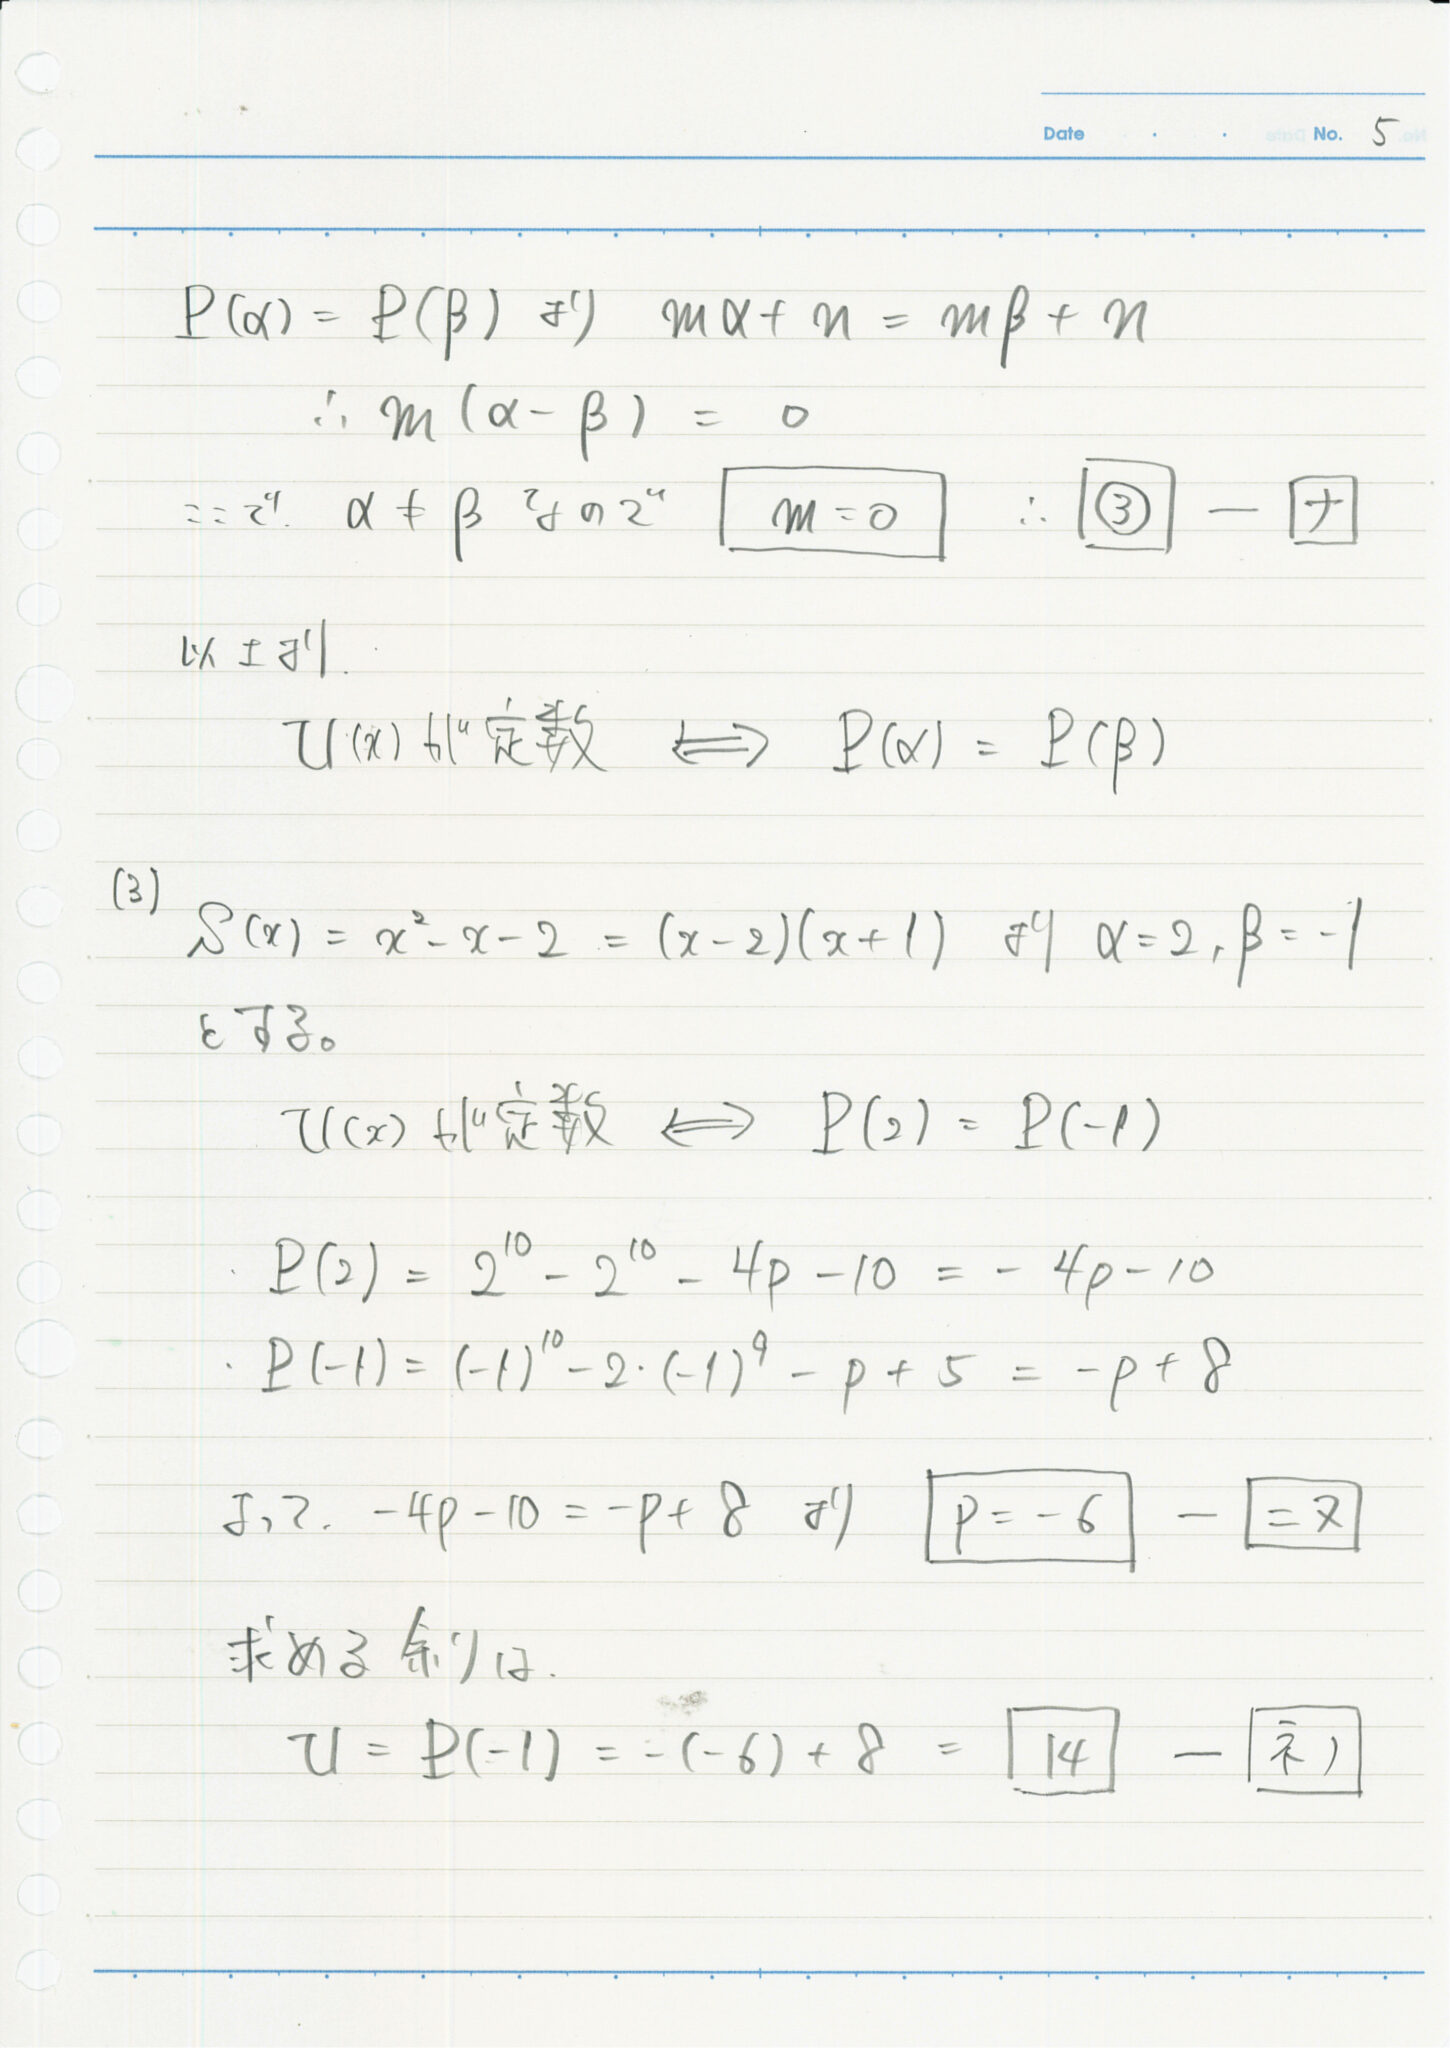 Date ・ ・ No. 5
P(α) = P(β) より mα + n = mβ + n
∴ m(α - β) = 0
ここで、α ≠ β なので m = 0 ∴ ③ ー ナ
以上より、
U(x) が定数 ⟺ P(α) = P(β)
(3)
S(x) = x² - x - 2 = (x - 2)(x + 1) より α = 2, β = -1
とする。
U(x) が定数 ⟺ P(2) = P(-1)
・P(2) = 2¹⁰ - 2¹⁰ - 4p - 10 = - 4p - 10
・P(-1) = (-1)¹⁰ - 2・(-1)⁹ - p + 5 = -p + 8
よって、-4p - 10 = -p + 8 より p = -6 ー ニヌ
求める余りは、
U = P(-1) = -(-6) + 8 = 14 ー ネノ